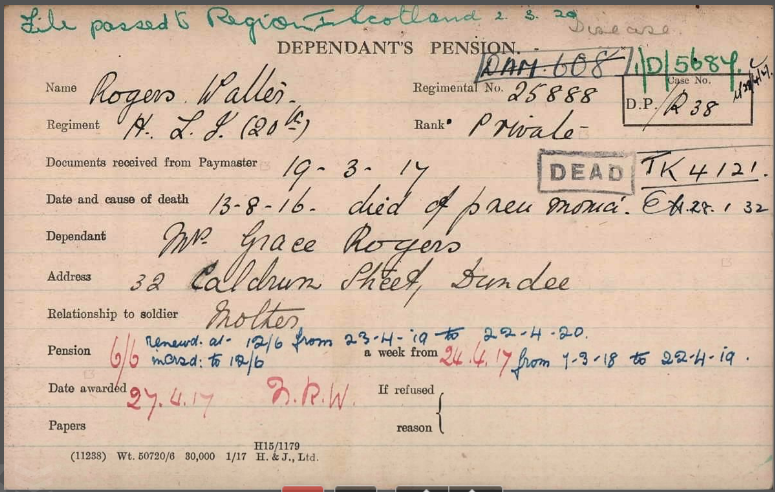 File passed to Region I Scotland 2.3.20
Disease.
DEPENDANT'S PENSION.
DAM.608 1/D/5684.
Name Rogers Walter. Regimental No. 25888 Case No.
D.P. /R 38
Regiment H. L. I. (20th) Rank Private
Documents received from Paymaster 19-3-17 DEAD TK 4121.
Date and cause of death 13-8-16. died of pneumonia. 28.1.32
Dependant Mrs. Grace Rogers
Address 32 Caldrum Street, Dundee
Relationship to soldier Mother
Pension 6/6 renewd. at 12/6 from 23-4-19 to 22-4-20.
incrsd: to 12/6 a week from 24.4.17 from 1-3-18 to 22-4-19.
Date awarded 27.4.17 If refused
Papers reason
(11238) Wt. 50720/6 30,000 1/17 H15/1179 H. & J., Ltd.